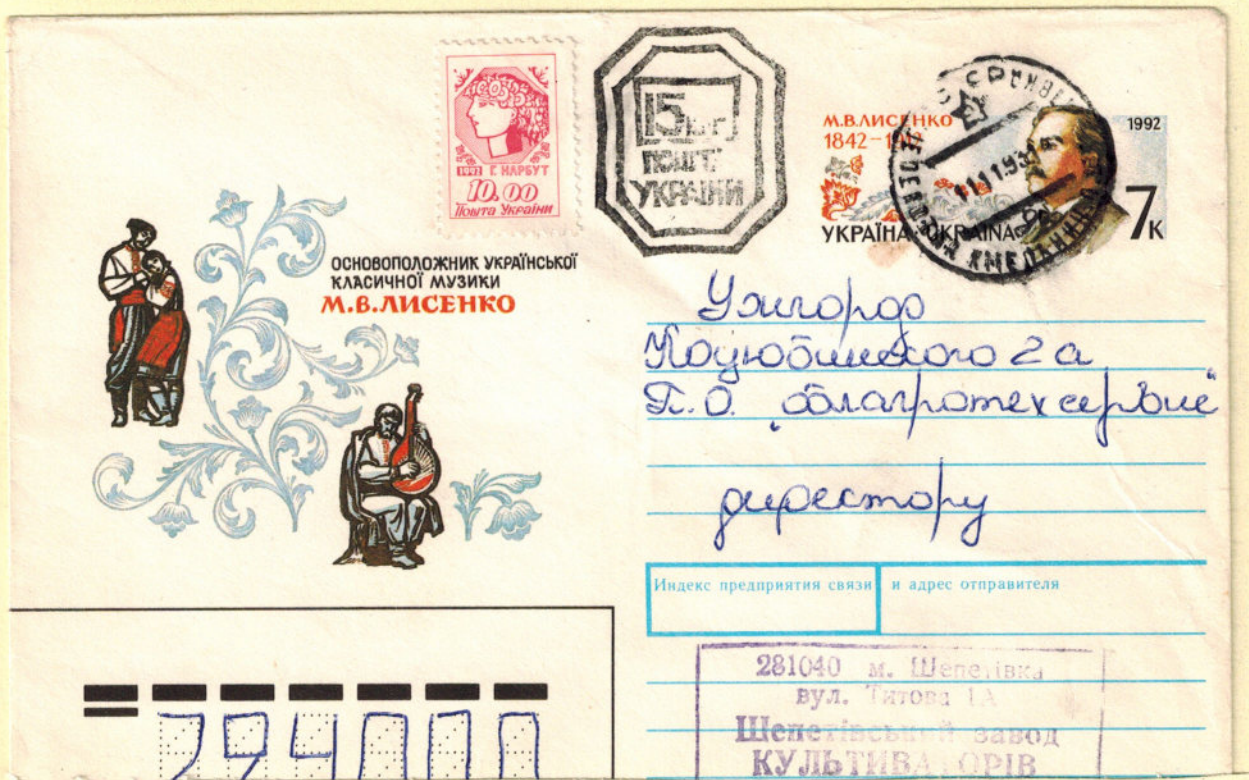 1992 Г. НАРБУТ
10.00
Пошта України
15
ПОШТ
УКРАЇНИ
М.В.ЛИСЕНКО
1842-1912
1992
7к
УКРАЇНА·UKRAINA
ОСНОВОПОЛОЖНИК УКРАЇНСЬКОЇ
КЛАСИЧНОЇ МУЗИКИ
М.В.ЛИСЕНКО
Ужгород
Коцюбинского 2а
П.О. „облагротехсервис"
директору
Индекс предприятия связи и адрес отправителя
281040 м. Шепетівка
вул. Титова 1А
Шепетівський завод
КУЛЬТИВАТОРІВ
294000